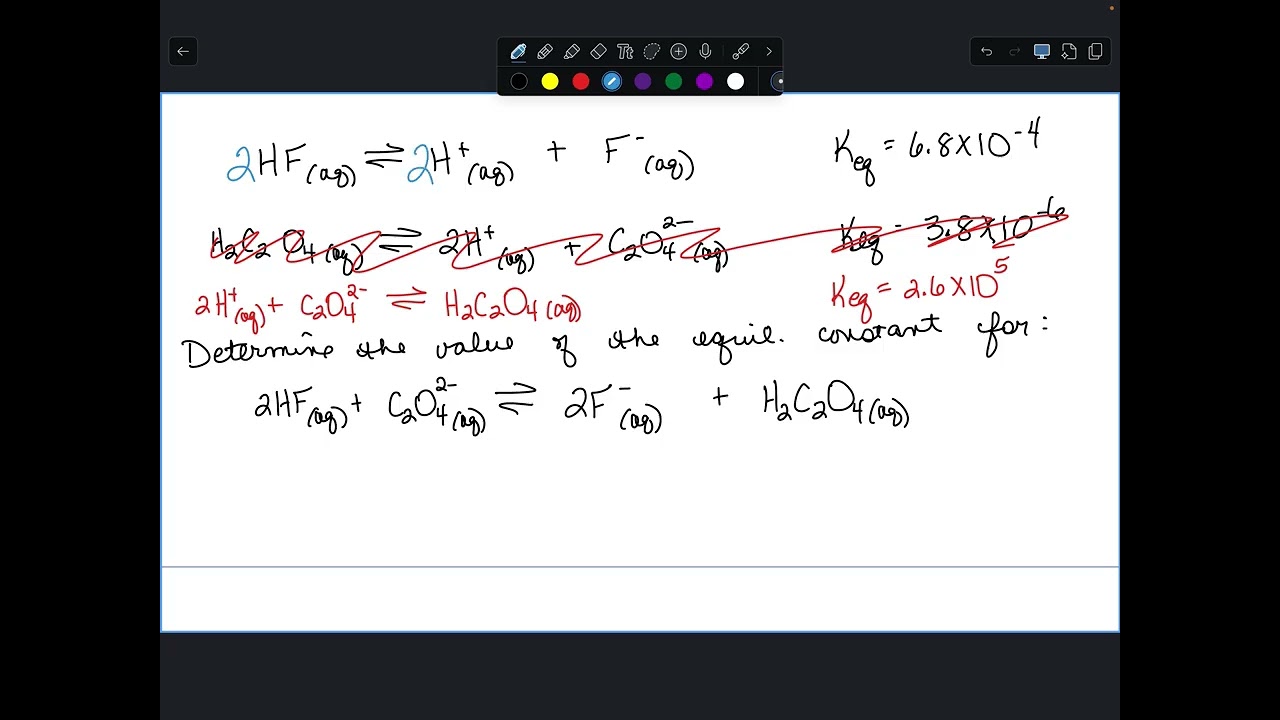 2HF(aq) ⇌ 2H⁺(aq) + F⁻(aq) Keq = 6.8×10⁻⁴
H₂C₂O₄(aq) ⇌ 2H⁺(aq) + C₂O₄²⁻(aq) Keq = 3.8×10⁻⁶
2H⁺(aq) + C₂O₄²⁻ ⇌ H₂C₂O₄(aq) Keq = 2.6×10⁵
Determine the value of the equil. constant for:
2HF(aq) + C₂O₄²⁻(aq) ⇌ 2F⁻(aq) + H₂C₂O₄(aq)